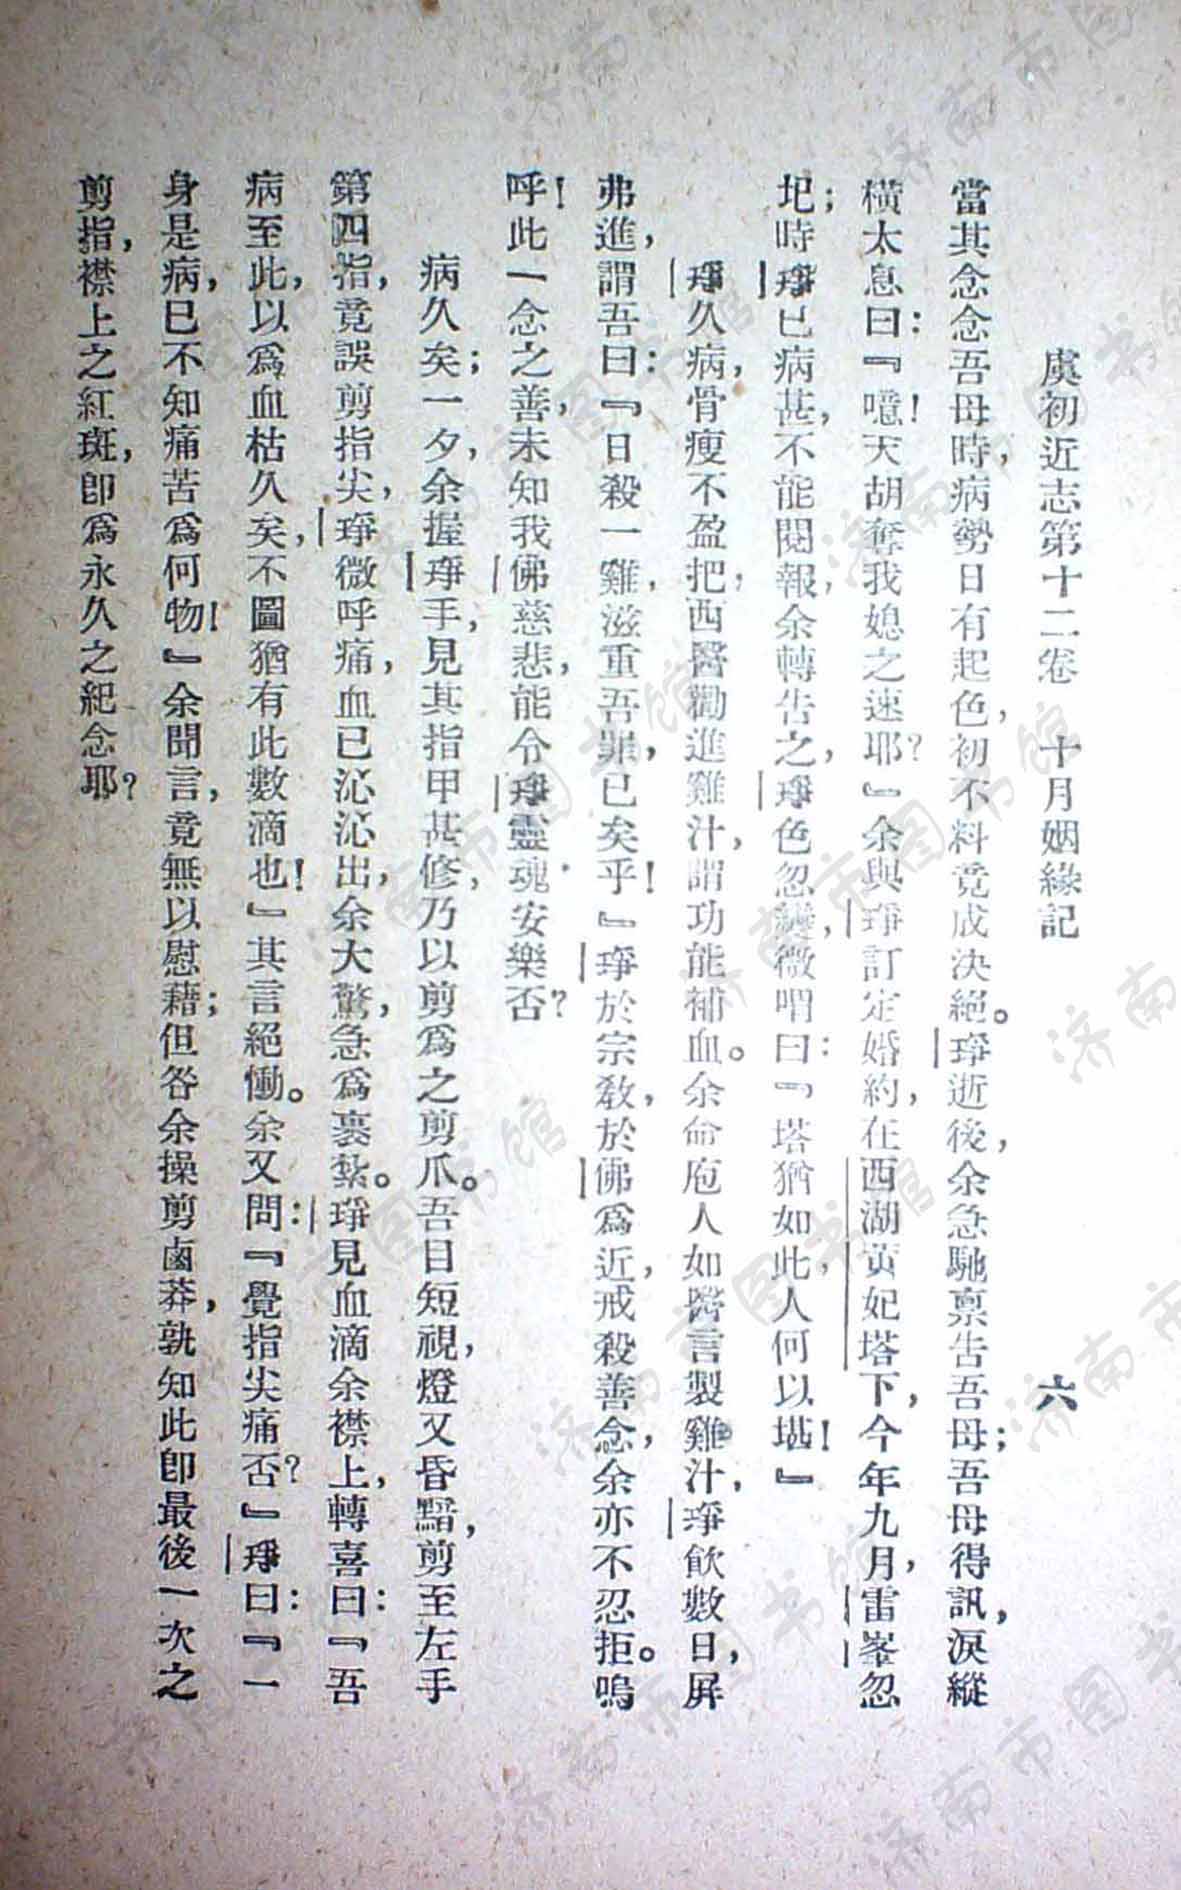 虞初近志第十二卷　十月姻緣記　六
當其念念吾母時，病勢日有起色，初不料竟成決絕。琤逝後，余急馳稟告吾母；吾母得訊，淚縱
橫太息曰：『噫！天胡奪我媳之速耶？』余與琤訂定婚約，在西湖黃妃塔下，今年九月，雷峯忽
圮；時琤已病甚，不能閱報，余轉告之，琤色忽變，微喟曰：『塔猶如此，人何以堪！』
琤久病，骨瘦不盈把，西醫勸進雞汁，謂功能補血。余命庖人如醫言製雞汁，琤飲數日，屏
弗進，謂吾曰：『日殺一雞，滋重吾罪，已矣乎！』琤於宗教，於佛爲近，戒殺善念，余亦不忍拒。嗚
呼！此一念之善，未知我佛慈悲，能令琤靈魂安樂否？
病久矣；一夕，余握琤手，見其指甲甚修，乃以剪爲之剪爪。吾目短視，燈又昏黯，剪至左手
第四指，竟誤剪指尖，琤微呼痛，血已沁沁出，余大驚，急爲裹紮。琤見血滴余襟上，轉喜曰：『吾
病至此，以爲血枯久矣，不圖猶有此數滴也！』其言絕慟。余又問：『覺指尖痛否？』琤曰：『一
身是病，已不知痛苦爲何物！』余聞言，竟無以慰藉；但咎余操剪鹵莽，孰知此卽最後一次之
剪指，襟上之紅斑，卽爲永久之紀念耶？
济南市图书馆